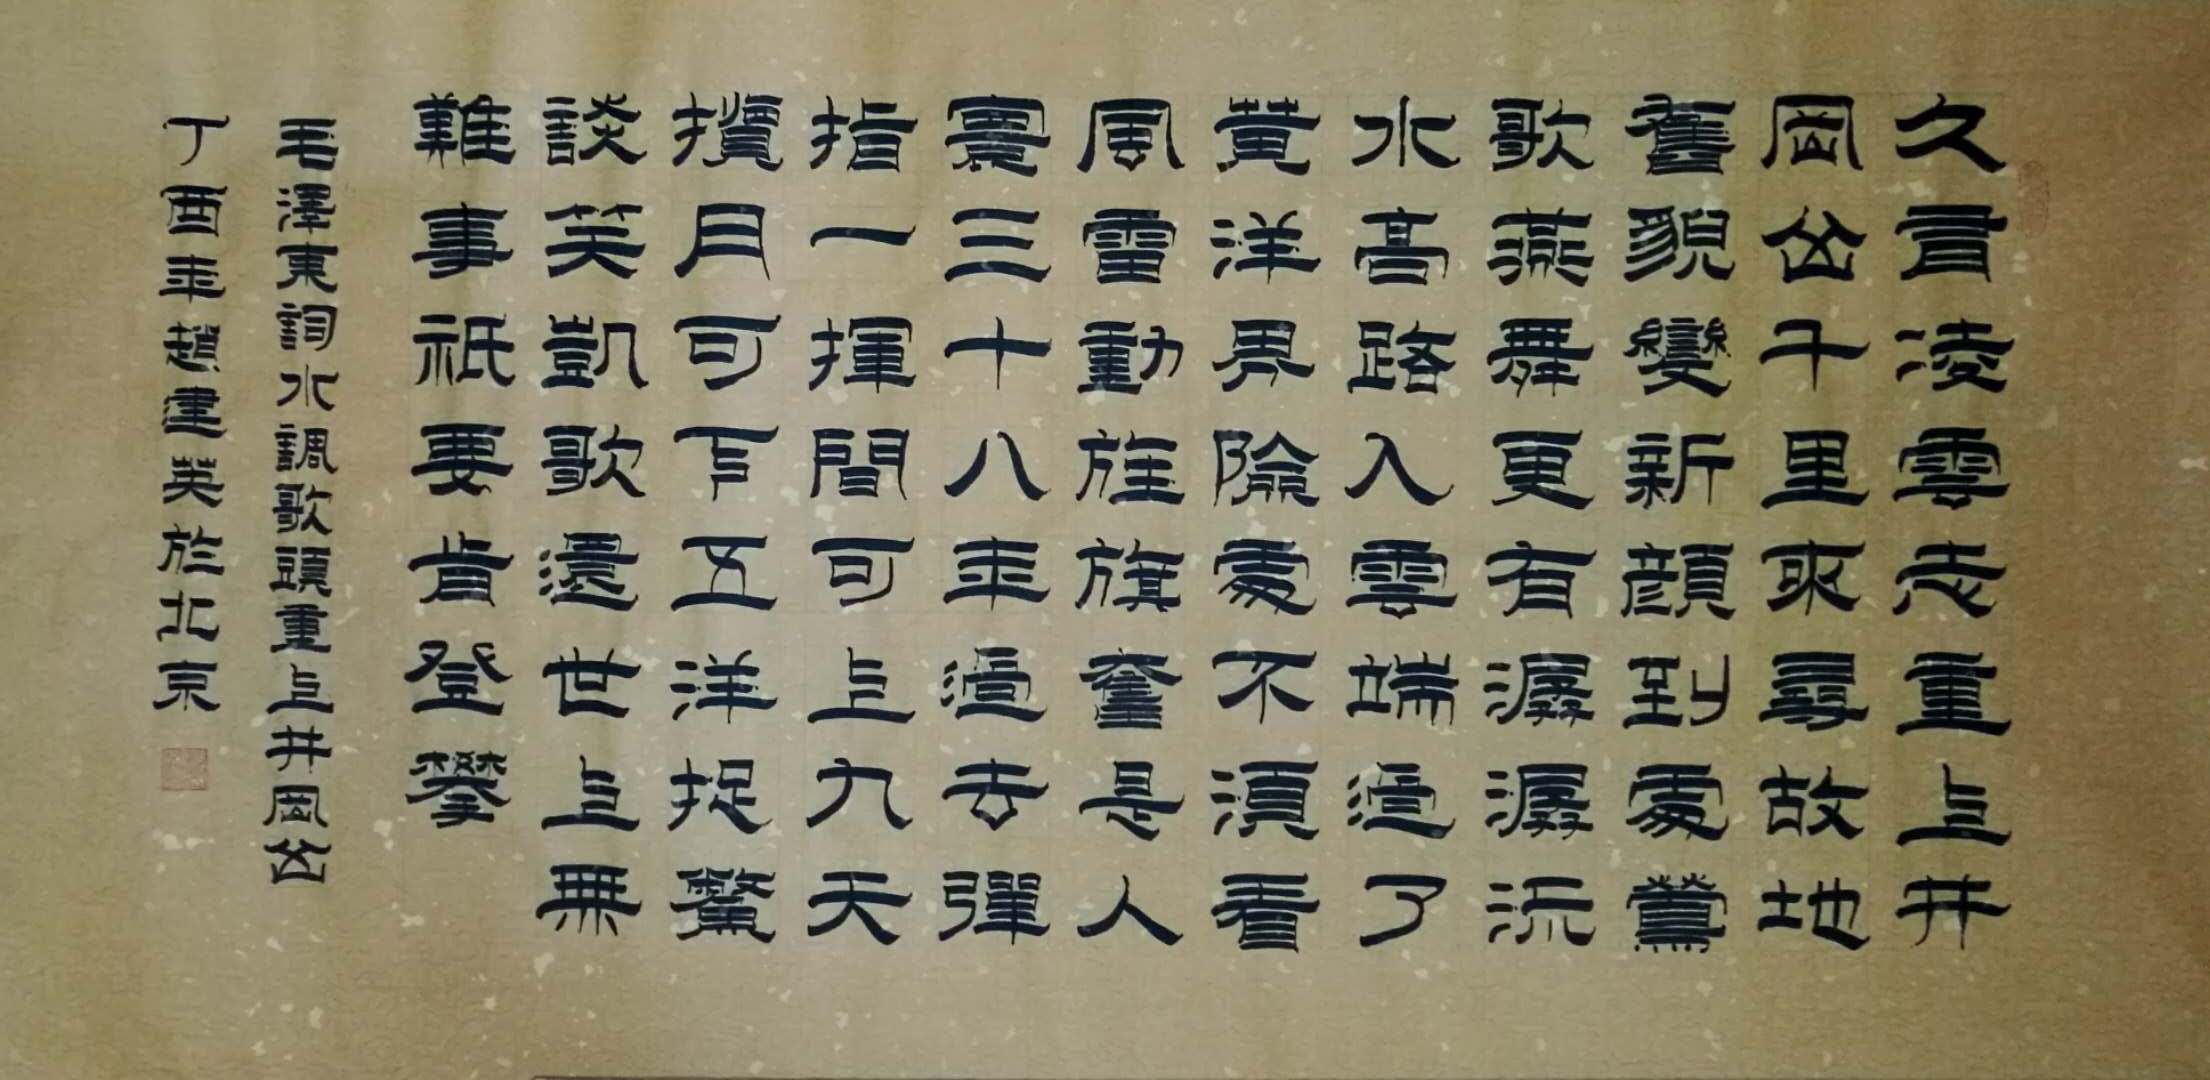 久有凌雲志重上井
岡山千里來尋故地
舊貌變新顏到處鶯
歌燕舞更有潺潺流
水高路入雲端過了
黄洋界險處不須看
風雷動旌旗奮是人
寰三十八年過去彈
指一揮間可上九天
攬月可下五洋捉鱉
談笑凱歌還世上無
難事祇要肯登攀
毛澤東詞水調歌頭重上井岡山
丁酉年趙建英於北京